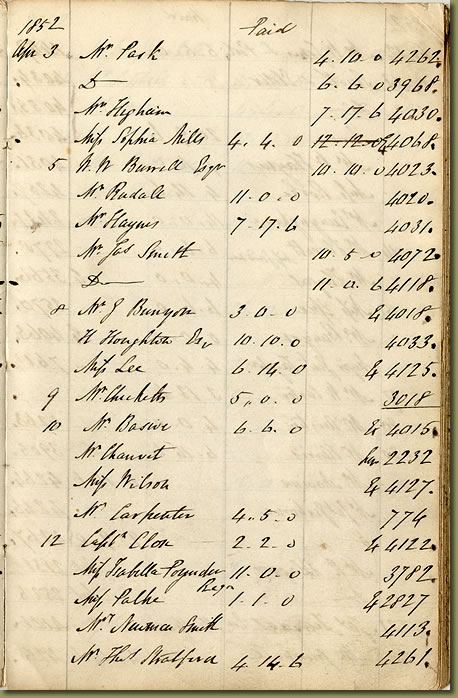 1852 Paid
Apr 3 Mr Park 4. 10. 0 4262.
D— 6. 6. 0 3968.
Mr Higham 7. 17. 6 4030.
Miss Sophia Mills 4. 4. 0 12. 12. 0 & 4068.
5 W. W Burrell Esqr 10. 10. 0 4023.
Mr Rudall 11. 0. 0 4020.
Mr Haynes 7. 17. 6 4031.
Mr Jas Smith 10. 5. 0 4072.
D— 11. 0. 6 4118.
8 Mr J Bunyon 3. 0. 0 & 4018.
H Houghton Esqr 10. 10. 0 4033.
Miss Lee 6. 14. 0 & 4125.
9 Mr 5. 0. 0 3018
10 Mr 6. 6. 0 & 4016.
Mr Chauvet 2232
Miss Wilson & 4127.
Mr Carpenter 4. 5. 0 774
12 Captn 2. 2. 0 & 4122.
Miss Isabella Poynder 11. 0. 0 3782.
Miss 1. 1. 0 & 2827
Mr Newman Smith 4113.
Mr Thos Stratford 4. 14. 6 4261.